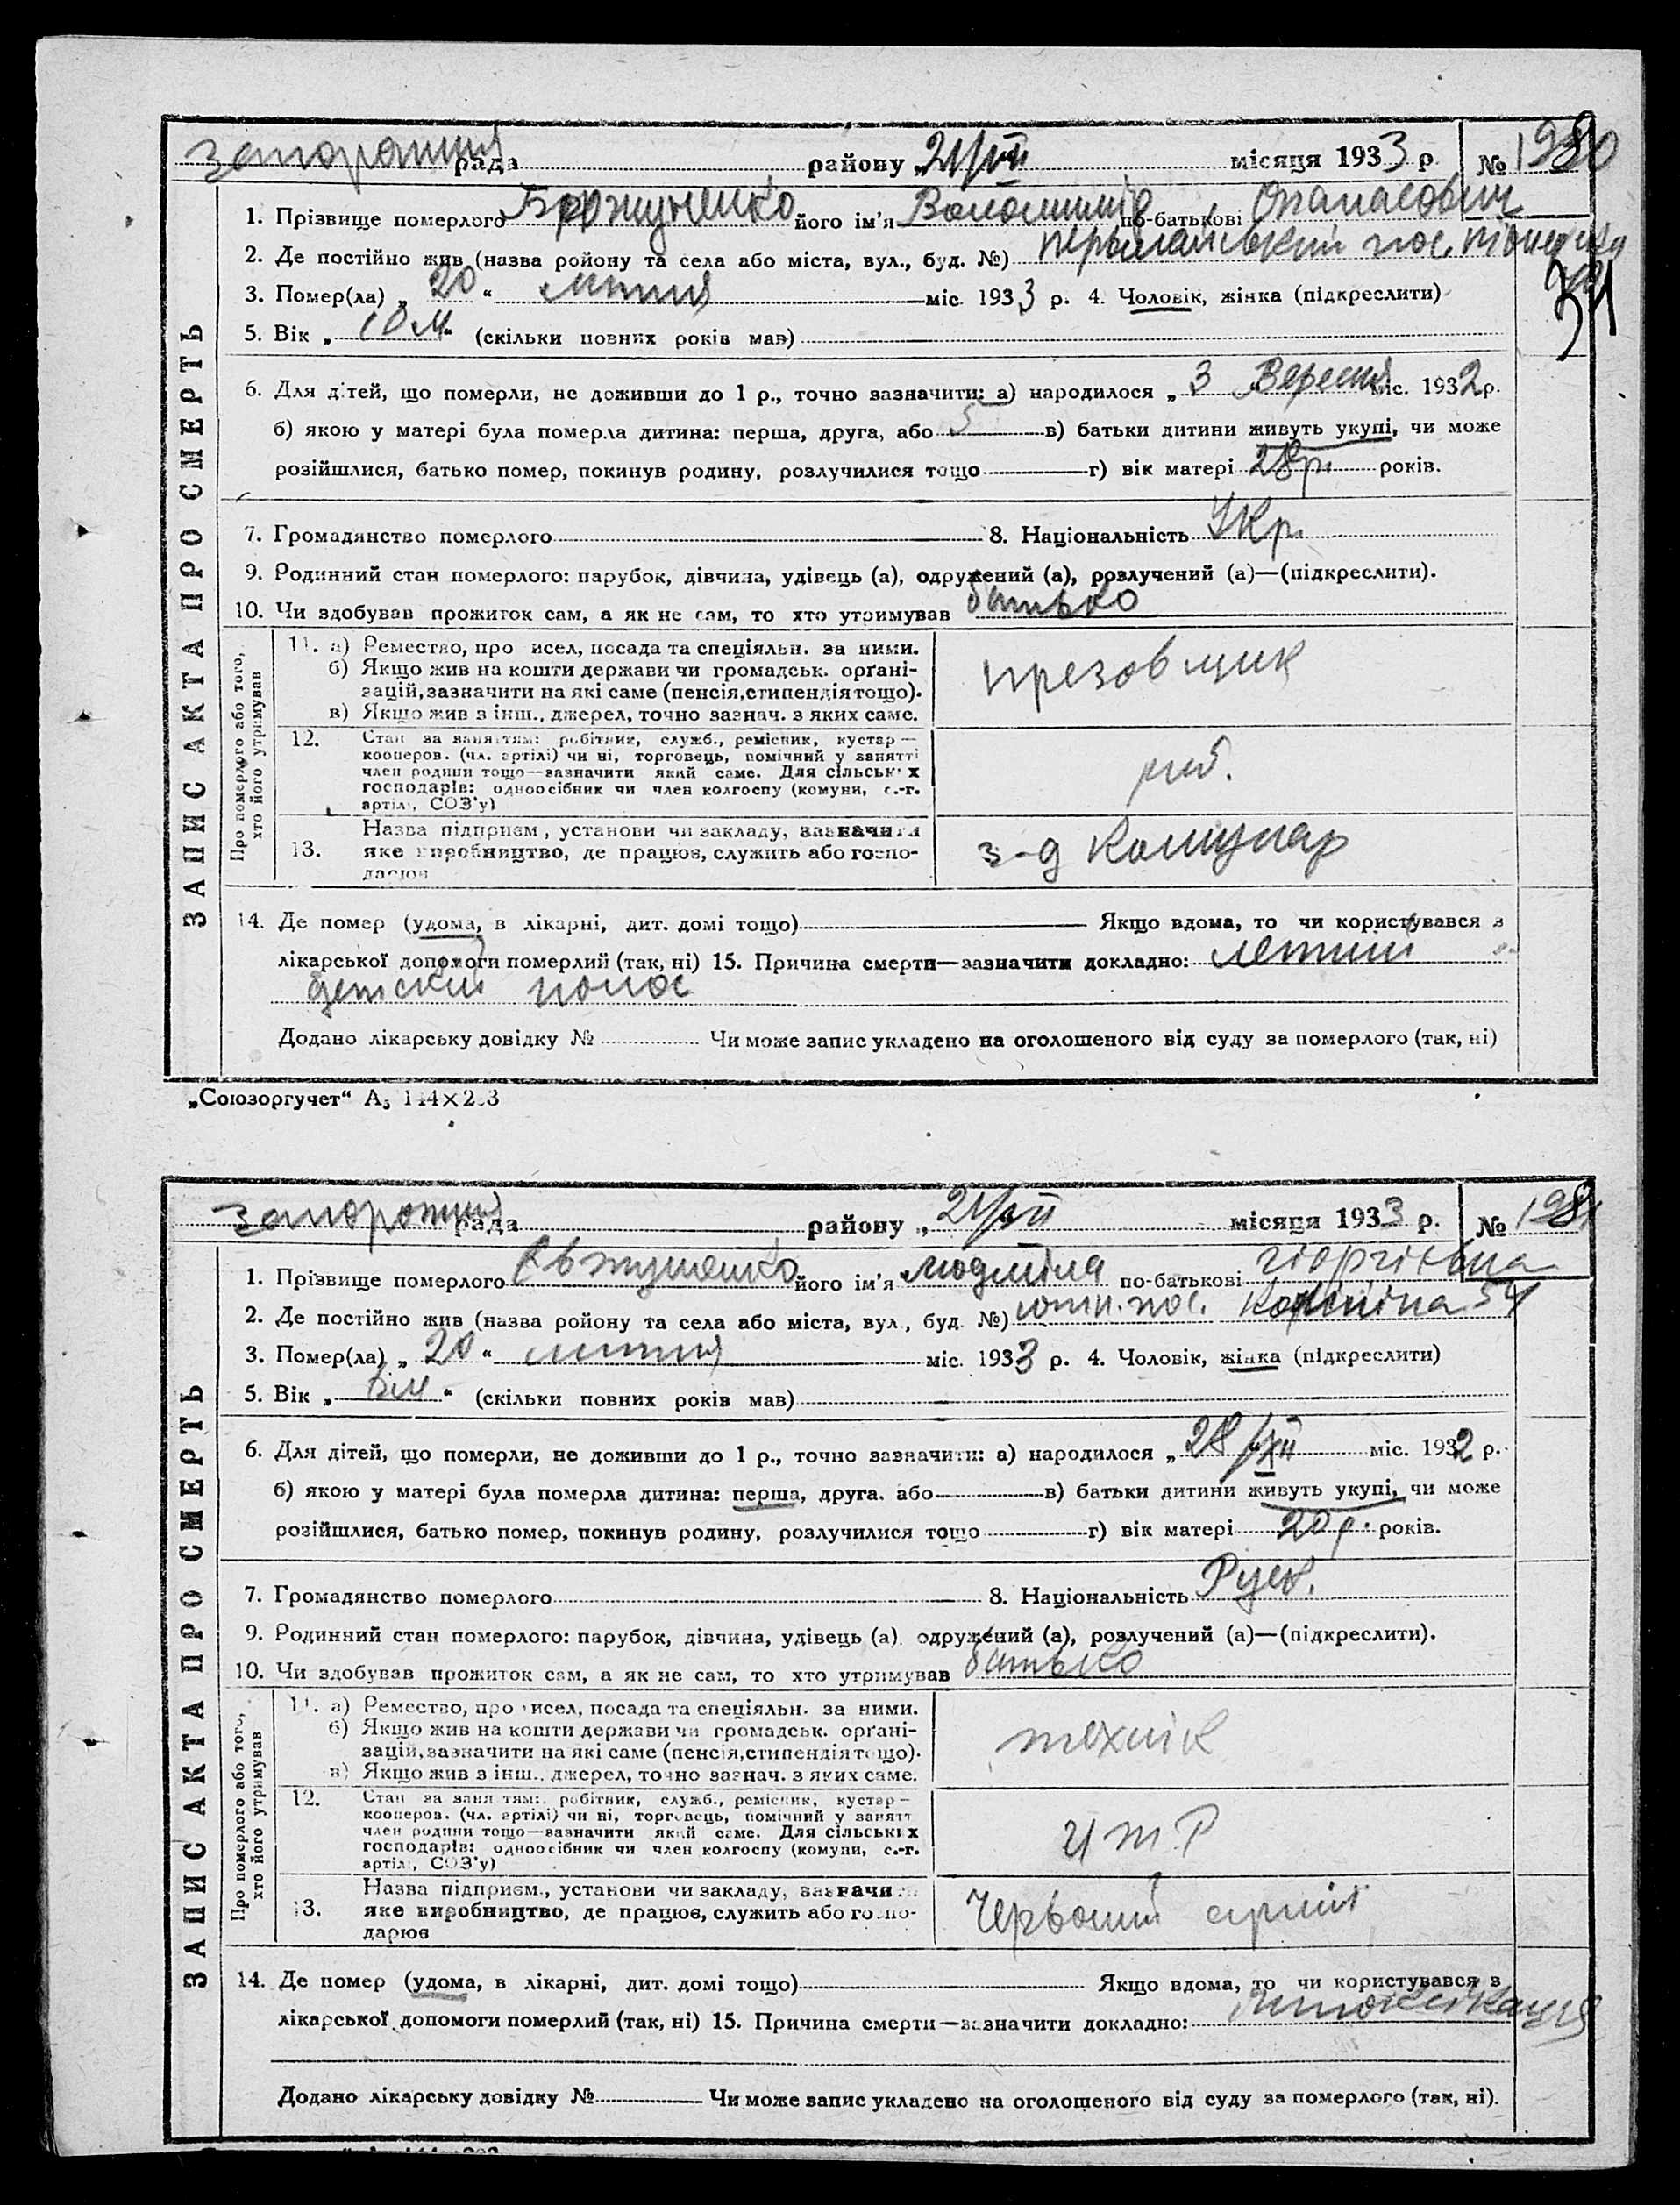 Запорожкий рада районУ „ 21/VII місяця 1933 р. № 1980
1. Прізвище померлого його ім’я Володимир по-батькові Опанасович
2. Де постійно жив (назва ройону та села або міста, вул., буд. №) первмайський пос.
3. Помер(ла) „ 20 “ липня міс. 1933 р. 4. Чоловік, жінка (підкреслити)
34
5. Вік „ 10 м “ (скільки повних років мав)
6. Для дітей, що померли, не доживши до 1 р., точно зазначити: а) народилося „ 3 “ Вересня міс. 1932 р.
б) якою у матері була померла дитина: перша, друга, або 5 в) батьки дитини живуть укупі, чи може
розійшлися, батько помер, покинув родину, розлучилися тощо г) вік матері 28 р. років.
7. Громадянство померлого 8. Національність Укр.
9. Родинний стан померлого: парубок, дівчина, удівець (а), одружений (а), розлучений (а)—(підкреслити).
10. Чи здобував прожиток сам, а як не сам, то хто утримував батько
ЗАПИС АКТА ПРО СМЕРТЬ
Про померлого або того, хто його утримував
11. а) Ремество, про исел, посада та спеціяльн. за ними.
б) Якщо жив на кошти держави чи громадськ. орґані-
зацій, зазначити на які саме (пенсія, стипендія тощо).
в) Якщо жив з інш., джерел, точно зазнач. з яких саме.
презовщик
12. Стан за заняттям: робітник, служб., ремісник, кустар—
кооперов. (чл. артілі) чи ні, торговець, помічний у занятті
член родини тощо—зазначити який саме. Для сільських
господарів: одноосібник чи член колгоспу (комуни, с.-г.
артілі, СОЗ’у)
роб.
13. Назва підприєм., установи чи закладу, зазначити
яке виробництво, де працює, служить або госпо-
дарює
з-д Комунар
14. Де помер (удома, в лікарні, дит. домі тощо) Якщо вдома, то чи користувався з
лікарської допомоги померлий (так, ні) 15. Причина смерти—зазначити докладно: летний
детский понос
Додано лікарську довідку № Чи може запис укладено на оголошеного від суду за померлого (так, ні)
„Союзоргучет“ А₅ 144×203
Запорожкий рада району „ 21/VII місяця 1933 р. № 1981
1. Прізвище померлого його ім’я Людміла по-батькові гіоргієвна
2. Де постійно жив (назва ройону та села або міста, вул., буд. №) пос. 54
3. Помер(ла) „ 20 “ липня міс. 1933 р. 4. Чоловік, жінка (підкреслити)
5. Вік „ 6 м “ (скільки повних років мав)
6. Для дітей, що померли, не доживши до 1 р., точно зазначити: а) народилося „ 28/XII міс. 1932 р.
б) якою у матері була померла дитина: перша, друга, або в) батьки дитини живуть укупі, чи може
розійшлися, батько помер, покинув родину, розлучилися тощо г) вік матері 20 р. років.
7. Громадянство померлого 8. Національність Руск.
9. Родинний стан померлого: парубок, дівчина, удівець (а), одружений (а), розлучений (а)—(підкреслити).
10. Чи здобував прожиток сам, а як не сам, то хто утримував батько
ЗАПИС АКТА ПРО СМЕРТЬ
Про померлого або того, хто його утримував
11. а) Ремество, про исел, посада та спеціяльн. за ними.
б) Якщо жив на кошти держави чи громадськ. орґані-
зацій, зазначити на які саме (пенсія, стипендія тощо).
в) Якщо жив з інш., джерел, точно зазнач. з яких саме.
технік
12. Стан за заняттям: робітник, служб., ремісник, кустар—
кооперов. (чл. артілі) чи ні, торговець, помічний у занятті
член родини тощо—зазначити який саме. Для сільських
господарів: одноосібник чи член колгоспу (комуни, с.-г.
артілі, СОЗ’у)
ИТР
13. Назва підприєм., установи чи закладу, зазначити
яке виробництво, де працює, служить або госпо-
дарює
Червоний
14. Де помер (удома, в лікарні, дит. домі тощо) Якщо вдома, то чи користувався з
лікарської допомоги померлий (так, ні) 15. Причина смерти—зазначити докладно: интоксикация
Додано лікарську довідку № Чи може запис укладено на оголошеного від суду за померлого (так, ні).